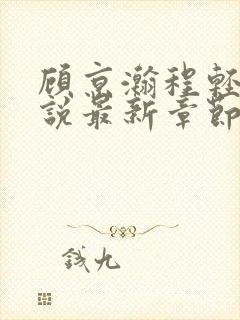 顾京瀚程轻
說最新章節
錢九